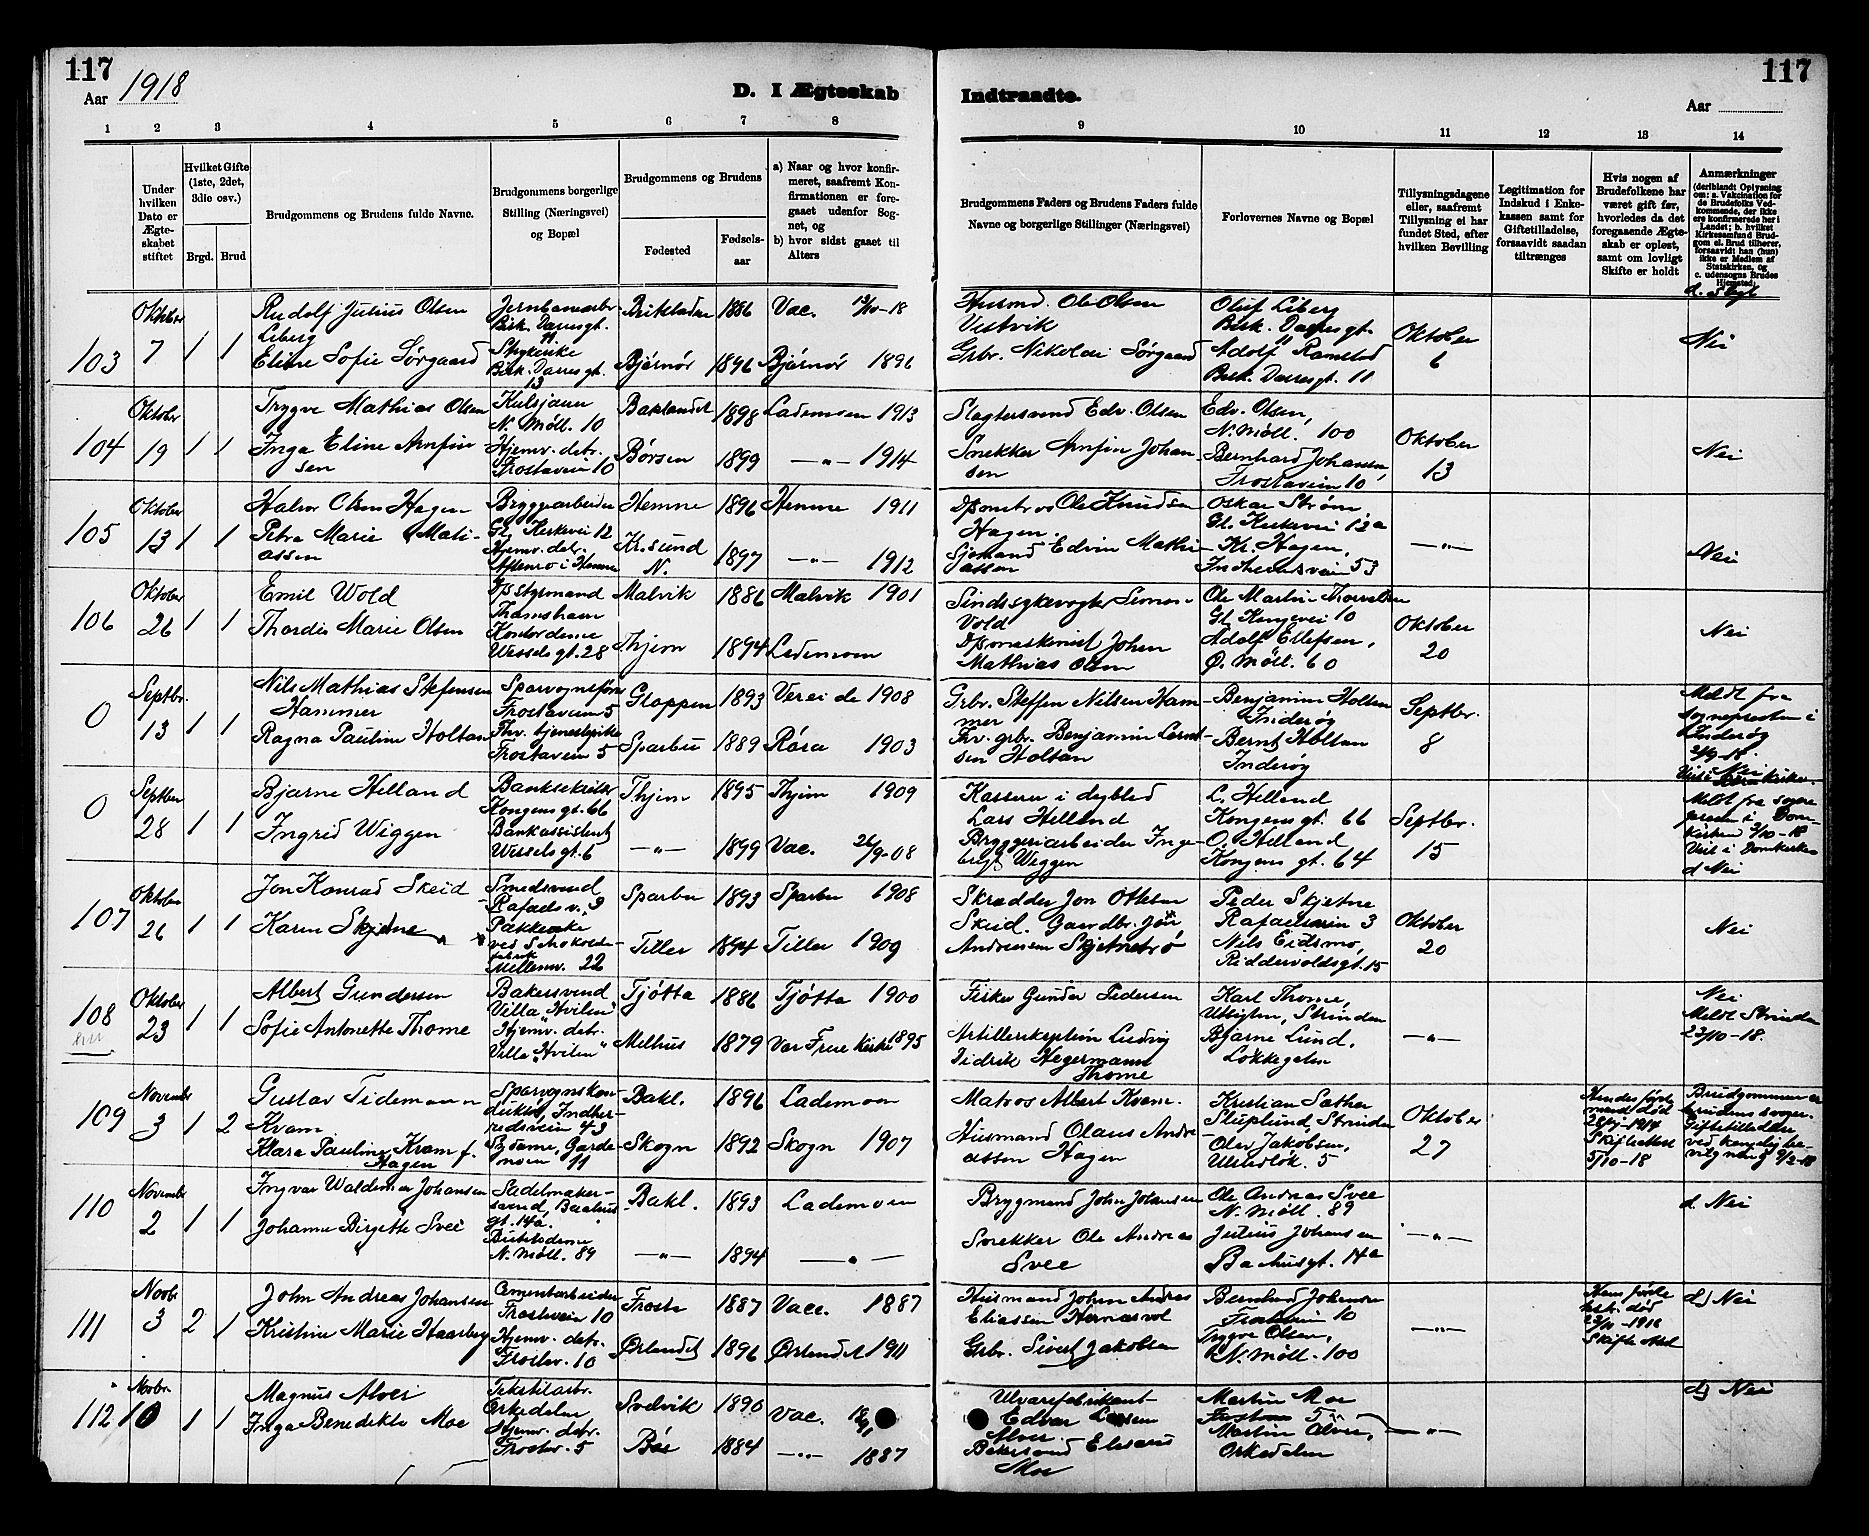 117
Aar 1918
D. I Ægteskab
Indtraadte.
117
Aar
1 2 3 4 5 6 7 8
9 10 11 12 13 14
Under hvilken Dato er Ægteskabet stiftet
Hvilket Gifte (1ste, 2det, 3die osv.)
Brgd. Brud
Brudgommens og Brudens fulde Navne.
Brudgommens borgerlige Stilling (Næringsvei) og Bopæl
Brudgommens og Brudens
Fødested
Fødselsaar
a) Naar og hvor konfirmeret, saafremt Konfirmationen er foregaaet udenfor Sognet, og
b) hvor sidst gaaet til Alters
Brudgommens Faders og Brudens Faders fulde Navne og borgerlige Stillinger (Næringsvei)
Forlovernes Navne og Bopæl
Tillysningsdagene eller, saafremt Tillysning ei har fundet Sted, efter hvilken Bevilling
Legitimation for Indskud i Enkekassen samt for Giftetilladelse, forsaavidt saadan tiltrænges
Hvis nogen af Brudefolkene har været gift før, hvorledes da det foregaaende Ægteskab er opløst, samt om lovligt Skifte er holdt
Anmærkninger
(deriblandt Oplysning om: a. Vakcination for de Brudefolks Vedkommende, der ikke ere konfirmerede her i Landet; b. hvilket Kirkesamfund Brudgom el. Brud tilhører, forsaavidt han (hun) ikke er Medlem af Statskirken, og c. udensogns Brudes Hjemsted)
103
Oktober 7
1 1
Rudolf Julius Olsen
Liberg
Eline Sofie Sørgaard
Jernbanearbr.
Bisk. Darresgt. 11
Bisk. Darresgt. 13
Bjørnør
1886
1896
Vac. 13/10-18
Bjørnør 1896
Husmd. Ole Olsen
Vestvik
Grbr. Nikolai Sørgaard
Oluf Liberg
Bisk. Darresgt. 11
Adolf Ramstad
Bisk. Darresgt. 11
Oktober 6
Nei
104
Oktober 19
1 1
Trygve Mathias Olsen
Inga Eline Arnfinsen
Kulsjauer
N. Møll. 100
Hjemv. datr.
Frostaveien 10
Baklandet
Børsen
1898
1899
Lademoen 1913
—"— 1914
Slagtersvend Edv. Olsen
Snekker Arnfin Johansen
Edv. Olsen,
N. Møll. 100
Bernhard Johansen
Frostaveien 10
Oktober 13
Nei
105
Oktober 13
1 1
Halvor Olsen Hagen
Petra Marie Matiassen
Bryggearbeider
Gl. Kirkevei 12
Hjemv. datr.
Hemne
Kr.sund N.
1896
1897
Hemne 1911
—"— 1912
Ole Knudsen
Hagen
Sjømand Edvin Mathiassen
Oskar Strøm,
Gl. Kirkevei 12a
Kr. Hagen,
Indherredsveien 53
—"—
Nei
106
Oktober 26
1 1
Emil Wold
Thordis Marie Olsen
Dpsstyrmand
Thamshavn
Kontordame
Wessels gt. 28
Malvik
Thjem
1886
1894
Malvik 1901
Lademoen
Sindssykevogter Simon Vold
Dpsmaskinist Johan
Mathias Olsen
Ole Martin Thorvaldsen
Gl. Kongevei 10
Adolf Ellefsen,
Ø. Møll. 60
Oktober 20
Nei
0
Septbr. 13
1 1
Nils Mathias Stefensen
Hammer
Ragna Pauline Holtan
Sporvognsfører
Frostaveien 5
Fhv. tjenestepike
Frostaveien 5
Gloppen
Sparbu
1893
1889
Vereide 1908
Røra 1903
Grbr. Steffen Nilsen Hammer
Fhv. grbr. Benjamin Berntsen Holtan
Benjamin Holtan
Inderøy
Bernt Holtan
Inderøy
Septbr. 8
Meldt fra
sognepresten i
Inderøy
Nei
0
Septbr 28
1 1
Bjarne Helland
Ingrid Wiggen
Banksekretær
Kongens gt. 66
Bankassistent
Wessels gt. 6
Thjem
—"—
1895
1899
Thjem 1909
Vac. 26/9-08
Kasserer i dagblad
Lars Helland
Bryggeriarbeider Ingebrigt Wiggen
L. Helland
Kongens gt. 66
O. Helland
Kongens gt. 64
Septbr. 15
Meldt fra sognepresten i Domkirken 3/10-18
Viet i Domkirken
d Nei
107
Oktober 26
1 1
Jon Konrad Skeid
Karen Skjetne
Smedsvend
Rafaels v. 3
Pakkerske
ved Schokoladefabrik
Mellemv. 22
Sparbu
Tiller
1893
1894
Sparbu 1908
Tiller 1909
Skrædder Jon Ottesen
Skeid. Gaardbr. Jon
Andreassen Skjetnetrø
Peder Skjetne
Rafaelsveien 3
Nils Eidsmo,
Riddervoldsgt. 15
Oktober 20
Nei
108
Oktober 23
1 1
Albert Gundersen
Sofie Antonette Thome
Bakersvend
Villa "Hvilen"
Hjemv. datr.
Villa "Hvilen"
Tjøtta
Melhus
1886
1879
Tjøtta 1900
Vor Frue Kirke 1895
Fisker Gunder Pedersen
Artillerikaptein Ludvig
Didrik Hegermann
Thome
Karl Thome,
Utsigten, Strinden
Bjarne Lund,
Løkkegaten
—"—
Nei
Meldt Strinden
23/10-18.
109
November 3
1 2
Gustav Tidemann
Kvam
Klara Pauline Kvam f.
Hagen
Sporvognskonduktør, Indherredsveien 43
Syerske, Gardemoen 11
Bakl.
Skogn
1896
1892
Lademoen
Skogn 1907
Matros Albert Kvam.
Husmand Olaus Andreassen Hagen
Kristian Sæther
Sluplund, Strinden
Olav Jakobsen,
Ulstadløk. 5
Oktober 27
Hendes første
mand død
Skifteattest
5/10-18
Brudgommen er
brudens svoger.
Giftetilladelse
ved kongelig bevilgning
110
November 2
1 1
Ingvar Waldemar Johansen
Johanna Birgitte Svee
Sadelmakersvend, Bachusgt. 14a.
N. Møll. 89
Bakl.
—"—
1893
1894
Lademoen
—"—
Brygmand John Johansen
Snekker Ole Andreas
Svee
Ole Andreas Svee
N. Møll. 89
Julius Johansen
Bachusgt. 14a
—"—
d. Nei
111
Novbr 3
2 1
John Andreas Johansen
Kristine Marie Haarberg
Cementarbeider
Frostavein 10
Hjemv. datr.
Frostav. 10
Frosta
Ørlandet
1887
1896
Vacc. 1887
Ørlandet 1911
Husmand Johan Andreas
Eliassen
Grbr. Sivert Jakobsen
Bernhard Johansen
Frostavein 10
Trygve Olsen,
N. Møll. 100
—"—
Hans første
hst. død
23/11-1916
Skifte attest
d) Nei
112
Novbr. 10
1 1
Magnus Alver
Inga Benedikte Moe
Tekstilarbr.
Orkedalen
Hjemv. datr.
Frostav. 5
Svelvik
Bøe
1890
1884
Vac.
—"— 1887
Ulvarefabrikant
Edvar Larsen
Alver.
Bakersvend Elesæus
Moe
Martin Moe
Frostav 5
Martin Alver,
Orkedalen
—"—
d) Nei